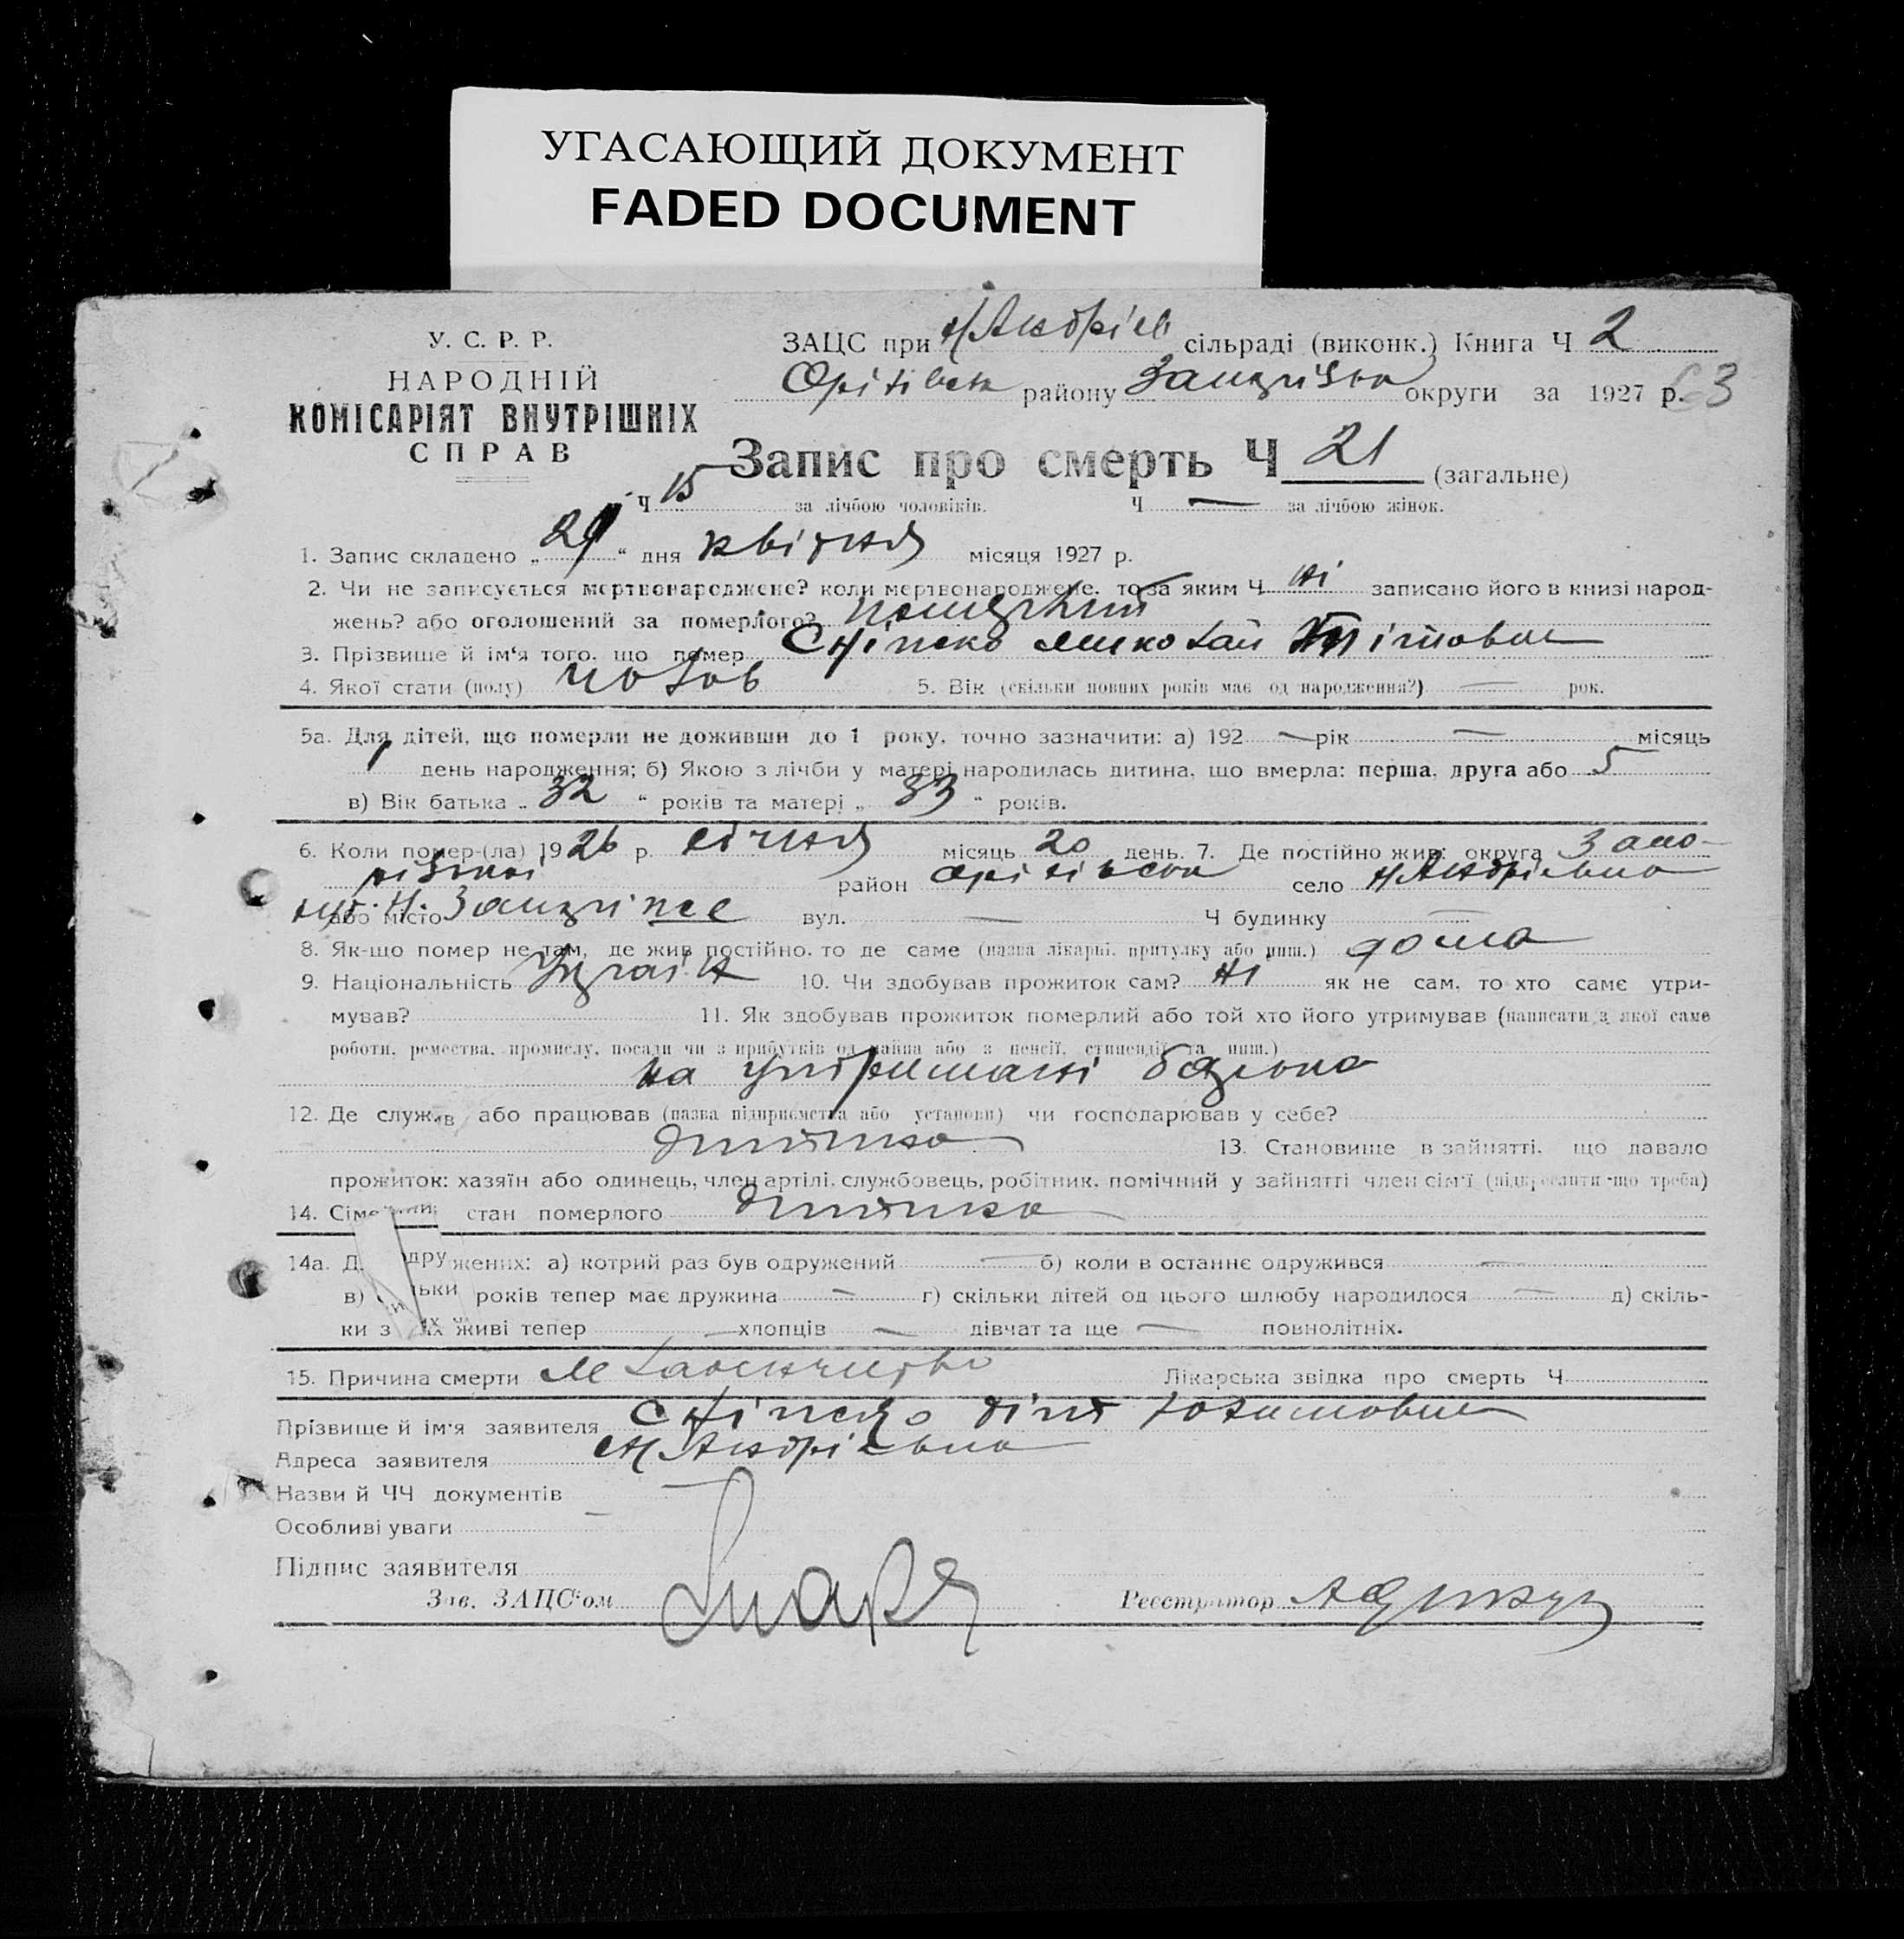 УГАСАЮЩИЙ ДОКУМЕНТ
FADED DOCUMENT
У. С. Р. Р.
НАРОДНІЙ
КОМІСАРІЯТ ВНУТРІШНІХ
СПРАВ
ЗАЦС при Н Андріев сільраді (виконк.) Книга Ч 2
Оріхівськ району округи за 1927 р. 63
Запис про смерть Ч 21 (загальне)
Ч 15 за лічбою чоловіків. Ч — за лічбою жінок.
1. Запис складено „ 29 “ дня квітня місяця 1927 р.
2. Чи не записується мертвонароджене? коли мертвонароджене, то за яким Ч ні записано його в книзі народ-
жень? або оголошений за померлого?
3. Прізвище й ім‘я того, що помер Сніпско Миколай Тітович
4. Якої стати (полу) Чолов 5. Вік (скільки повних років має од народження?) — рок.
5а. Для дітей, що померли не доживши до 1 року, точно зазначити: а) 192 — рік — місяць
день народження; б) Якою з лічби у матері народилась дитина, що вмерла: перша, друга або 5
в) Вік батька „ 32 “ років та матері „ 33 “ років.
6. Коли помер-(ла) 1926 р. січня місяць 20 день. 7. Де постійно жив: округа Запо-
різькі район Оріхівська село Н Андрівна
або місто вул. — Ч будинку —
8. Як-що помер не там, де жив постійно, то де саме (назва лікарні, притулку або инш.) дома
9. Національність Україн 10. Чи здобував прожиток сам? ні як не сам, то хто саме утри-
мував? 11. Як здобував прожиток померлий або той хто його утримував (написати з якої саме
роботи, ремества, промислу, посади чи з прибутків од майна або з пенсії, стипендії та инш.)
на утриманні батька
12. Де служив або працював (назва підприємства або установи) чи господарював у себе?
дитина 13. Становище в зайнятті, що давало
прожиток: хазяїн або одинець, член артілі, службовець, робітник, помічний у зайнятті член сім‘ї (підкреслити що треба)
14. стан померлого дитина
14а. одружених: а) котрий раз був одружений — б) коли в останнє одружився —
в) років тепер має дружина — г) скільки дітей од цього шлюбу народилося — д) скіль-
ки з них живі тепер — хлопців — дівчат та ще — повнолітніх.
15. Причина смерти Лікарська звідка про смерть Ч
Прізвище й ім‘я заявителя Сніпско Тіт
Адреса заявителя Н Андрівна
Назви й ЧЧ документів
Особливі уваги —
Підпис заявителя
Зав. ЗАЦС‘ом Реєстратор